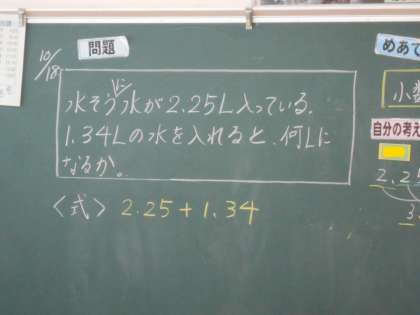 10/18
問題
水そうに水が2.25L入っている。
1.34Lの水を入れると、何Lに
なるか。
〈式〉 2.25+1.34
めあて
小数
自分の考え
2.25
3